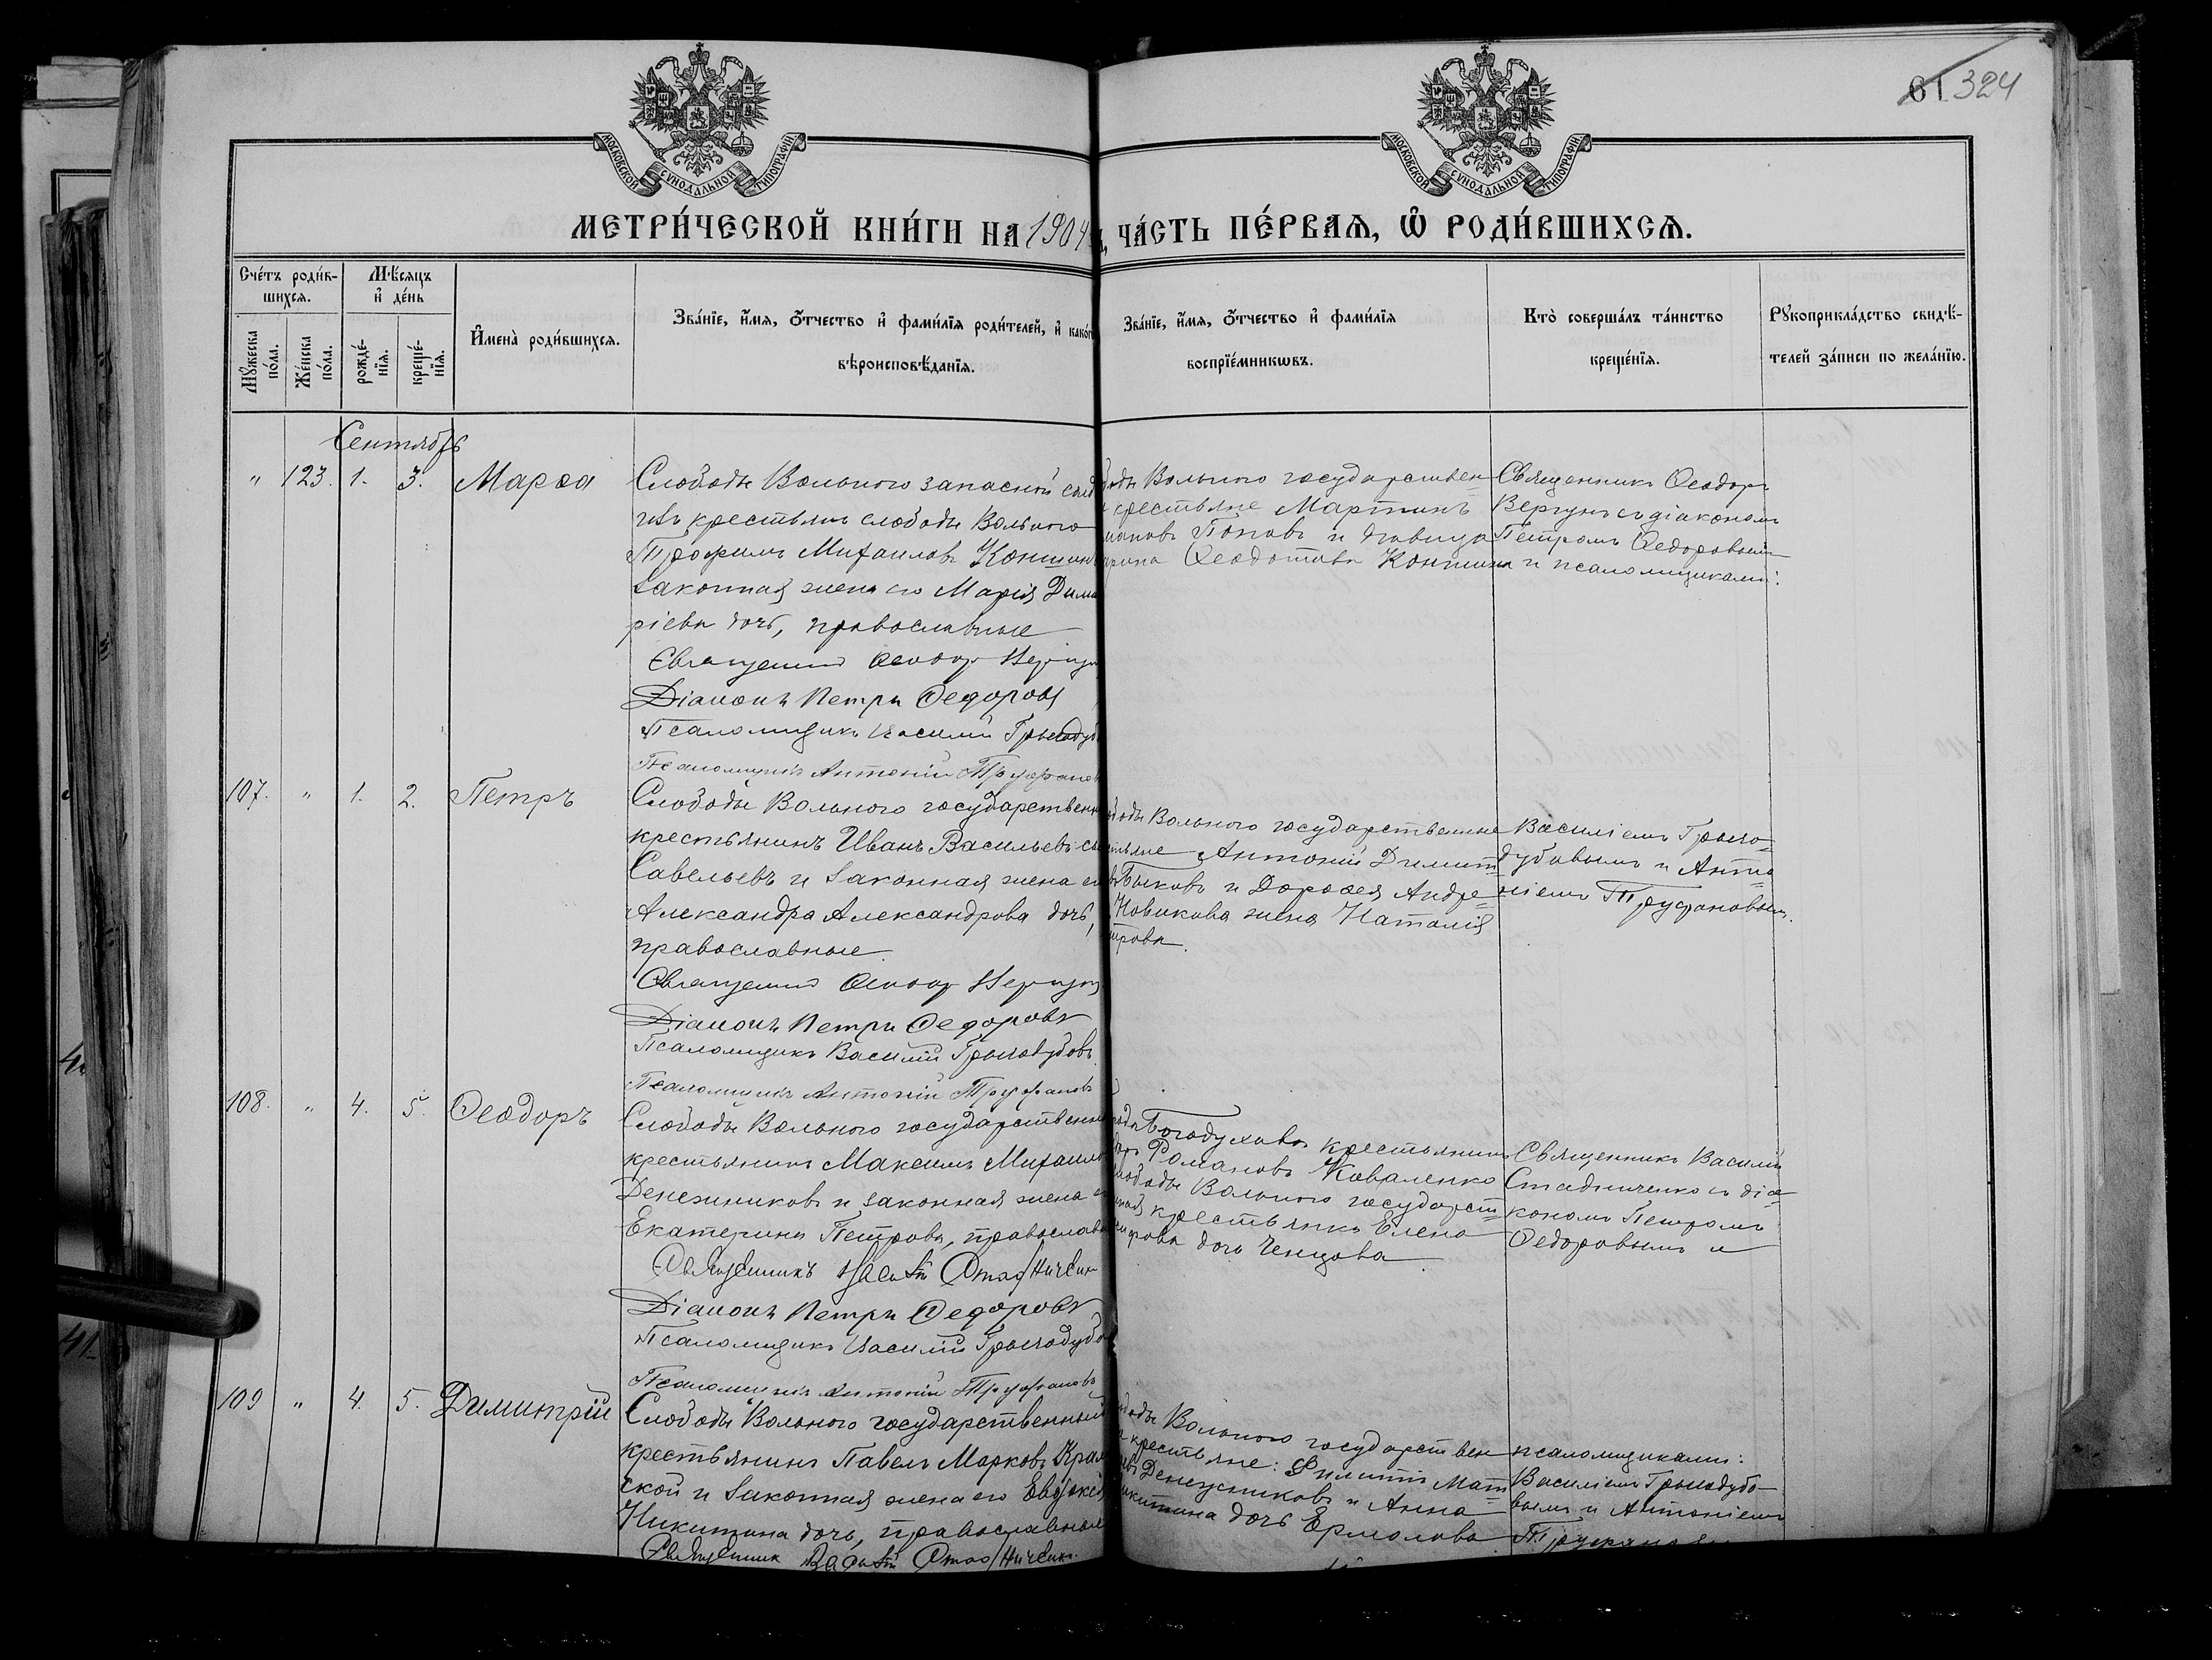 61. 324
МОСКОВСКОЙ СѴНОДАЛЬНОЙ ТИПОГРАФІИ
МОСКОВСКОЙ СѴНОДАЛЬНОЙ ТИПОГРАФІИ
МЕТРИ́ЧЕСКОЙ КНИ́ГИ НА 1904
ЧА́СТЬ ПЕ́РВАѦ, Ѡ҆ РОДИ́ВШИХСѦ.
Сче́тъ роди́в-
шихсѧ.
Мꙋжеска по́ла.
Же́нска по́ла.
Мѣ́сѧцъ
и҆ де́нь
рожде́-
нїѧ.
креще́-
нїѧ.
И҆мена̀ роди́вшихсѧ.
Зва́нїе, и҆́мѧ, ѻ҆́тчество и҆ фами́лїѧ роди́телей, и҆ како́г
вѣроисповѣ́данїѧ.
Зва́нїе, и҆́мѧ, ѻ҆́тчество и҆ фами́лїѧ
воспрїе́мникѡвъ.
Кто̀ соверша́лъ та́инство
креще́нїѧ.
Рꙋкоприкла́дство свидѣ́-
телей за́писи по жела́нїю.
Сентябрь
" 123. 1. 3. Марѳа
Слободы Вольного запасной солд
изъ крестьянъ слободы Вольного
Трофимъ Михаиловъ Коншинъ
законная жена его Марія Дими
ріева дочь, православные
Священникъ Ѳеодоръ Вергунъ
Діаконъ Петръ Ѳедоровъ
Псаломщикъ Василій Грызодуб
Псаломщикъ Антоній Труфановъ
боды Вольного государствен=
крестьяне Мартинъ
Поповъ и дѣвица
Ѳеодотова Коншина
Священникъ Ѳеодоръ
Вергунъ съ діакономъ
Петромъ Ѳедоровымъ
и псаломщиками:
107. " 1. 2. Петръ
Слободы Вольного государственн
крестьянинъ Иванъ Васильевъ сы
Савельевъ и законная жена ег
Александра Александрова дочь,
православные.
Священникъ Ѳеодоръ Вергунъ
Діаконъ Петръ Ѳедоровъ
Псаломщикъ Василій Грызодубовъ
Псаломщикъ Антоній Труфановъ
боды Вольного государственные
стьяне Антоній Димит=
Быковъ и Дороѳея Андре=
Новикова жена Наталія
трова.
Василіемъ Грызо=
дубовымъ и Анто=
ніемъ Труфановым.
108. " 4. 5. Ѳеодоръ
Слободы Вольного государственн
крестьянинъ Максимъ Михаило
Денежниковъ и законная жена е
Екатерина Петрова, православн
Священникъ Василій Стадниченко
Діаконъ Петръ Ѳедоровъ
Псаломщикъ Василій Грызодубо
Псаломщикъ Антоній Труфановъ
Богодухова крестьянинъ
Романовъ Коваленко
лободы Вольного государст=
ная крестьянка Елена
дочь Ченцова
Священникъ Василій
Стадниченко съ діа=
кономъ Петромъ
Ѳедоровымъ и
109 " 4. 5. Димитрій
Слободы Вольного государственный
крестьянинъ Павелъ Марковъ Крам
ской и законная жена его Евдокія
Никитина дочь, православные
Священникъ Василій Стадниченко.
боды Вольного государствен
крестьяне: Филиппъ Мат=
Денежниковъ и Анна
икитина дочь Ермолова
псаломщиками:
Василіемъ Грызодубо=
вымъ и Антоніемъ